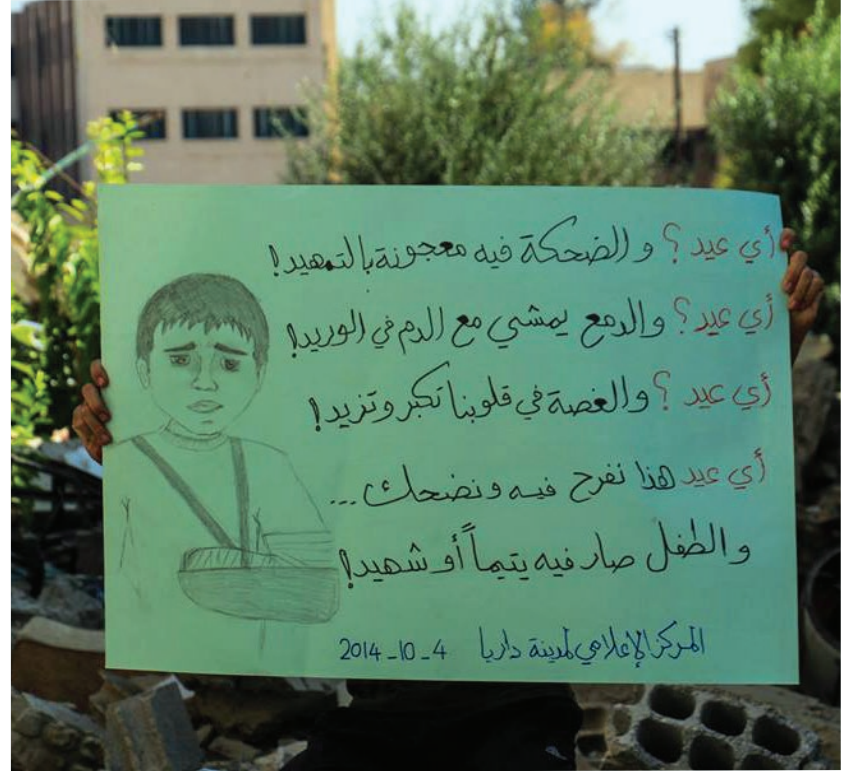 أي عيد ؟ والضحكة فيه معجونة بالتمهيد!
أي عيد ؟ والدمع يمشي مع الدم في الوريد!
أي عيد ؟ والغصة في قلوبنا تكبر وتزيد!
أي عيد هذا نفرح فيه ونضحك ...
والطفل صار فيه يتيماً أو شهيد!
المركز الإعلامي لمدينة داريا 4_10_2014